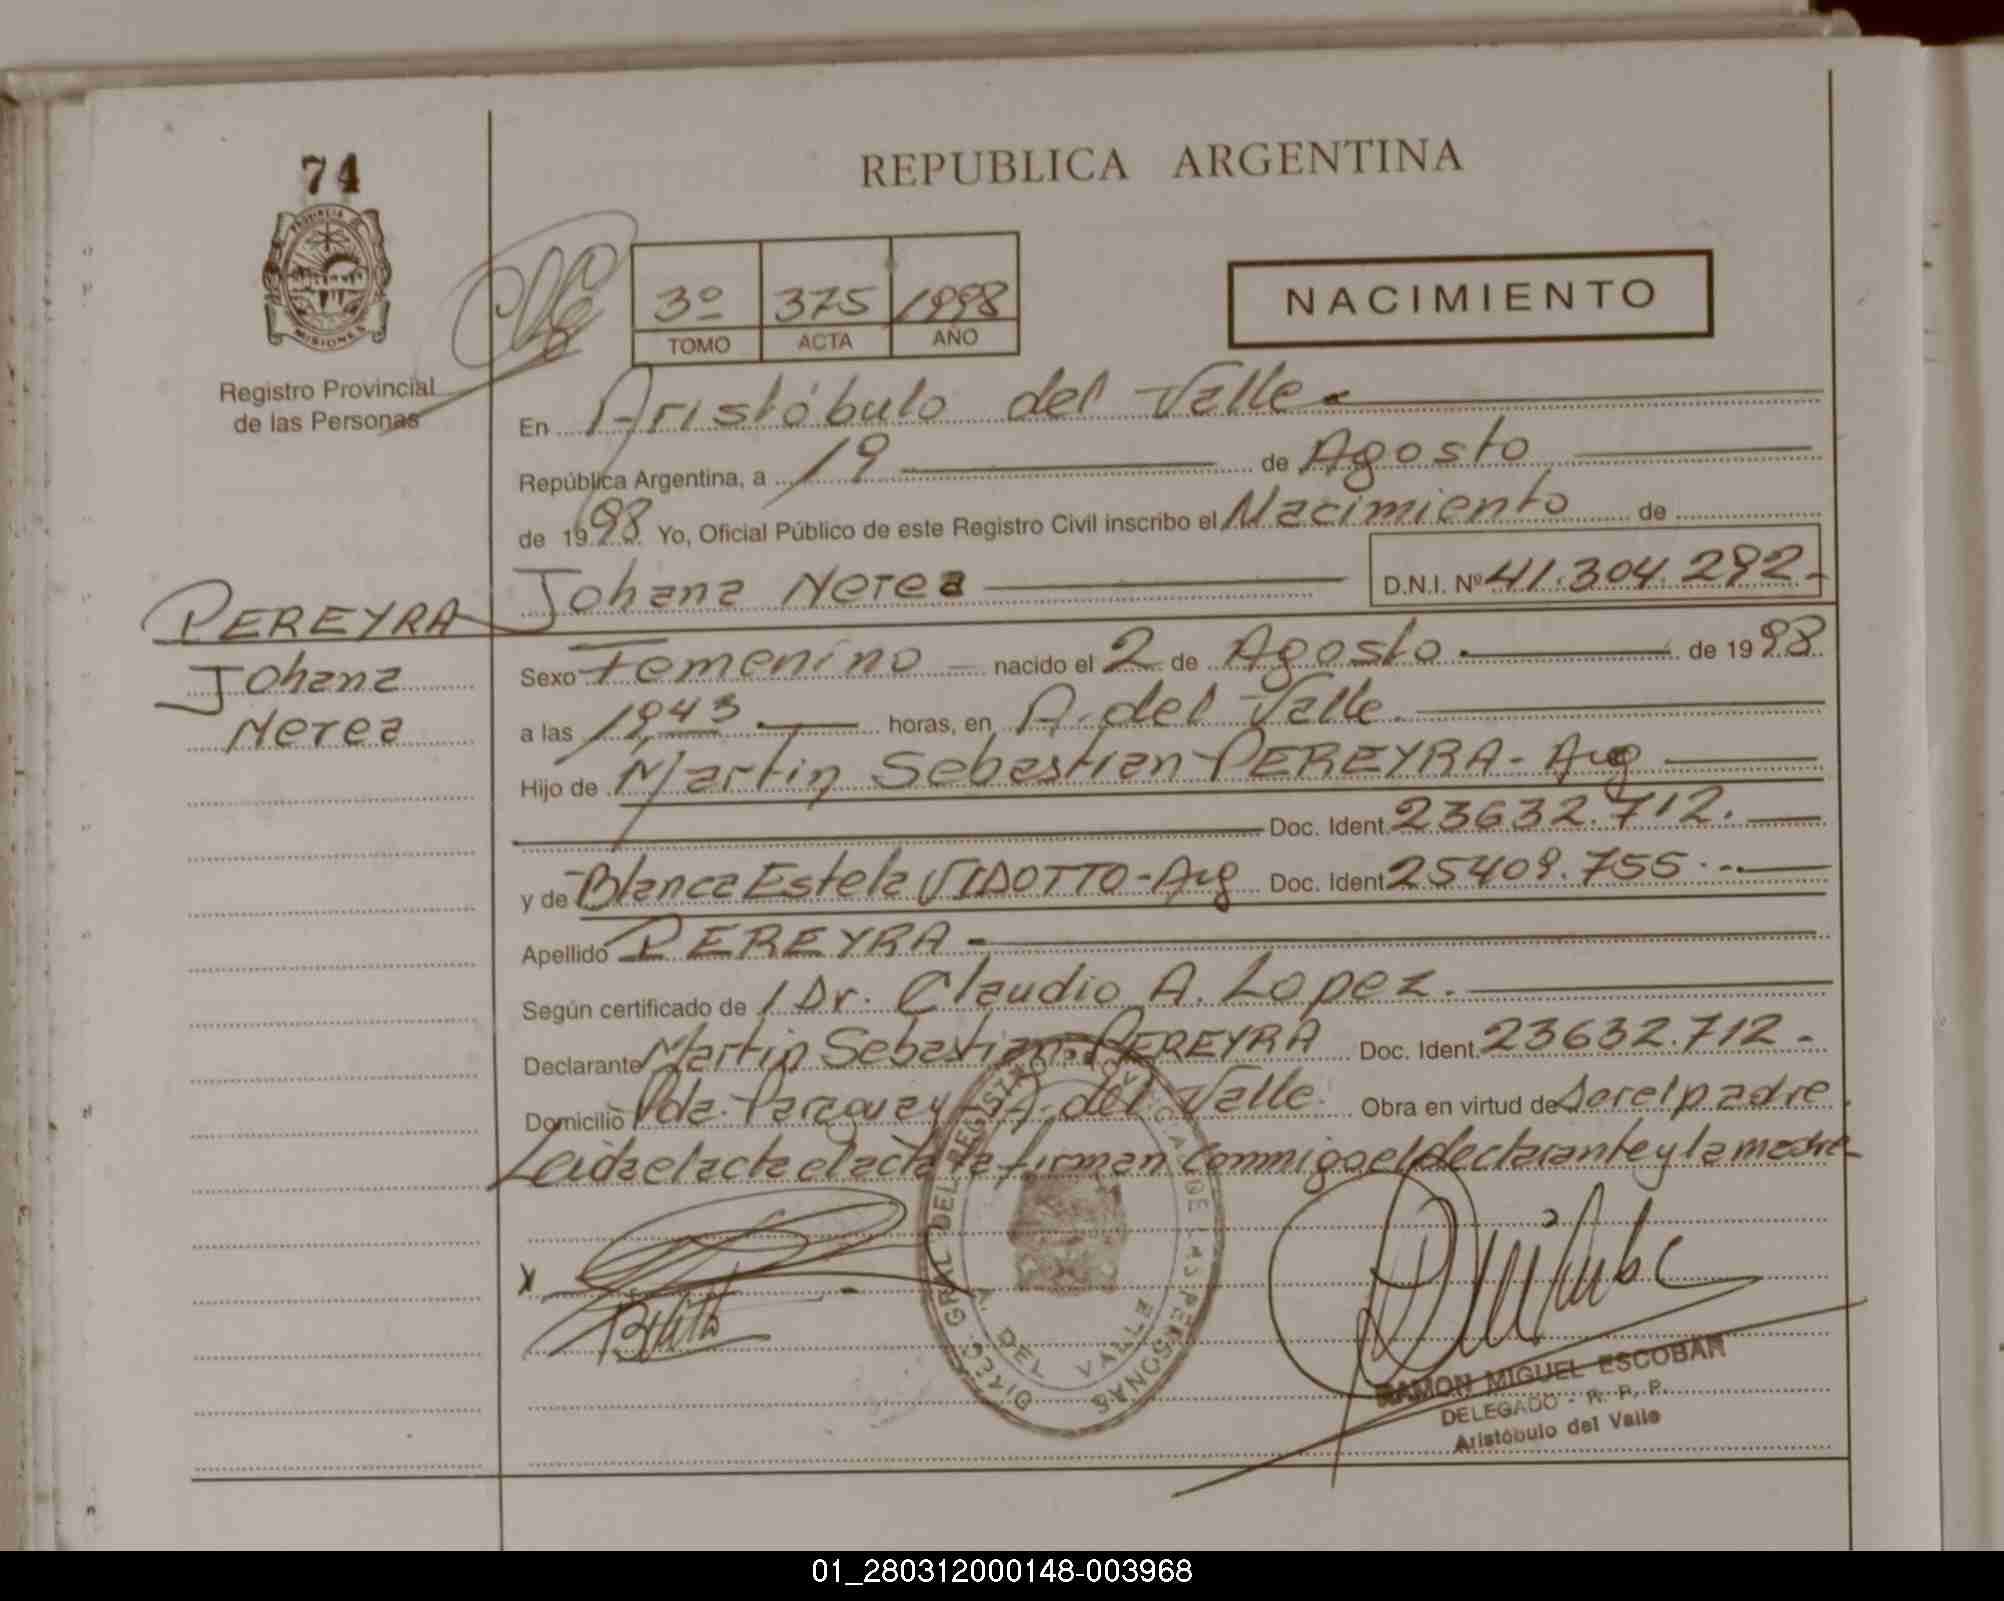 74
PROVINCIA DE
MISIONES
Registro Provincial
de las Personas
REPUBLICA ARGENTINA
3º 375 1998
TOMO ACTA AÑO
NACIMIENTO
En Aristóbulo del Valle
República Argentina, a 19 de Agosto
de 1998 Yo, Oficial Público de este Registro Civil inscribo el Nacimiento de
Johana Nerea D.N.I. Nº 41.304.292
PEREYRA
Johana
Nerea
Sexo Femenino nacido el 2 de Agosto de 1998
a las 19,43 horas, en A. del Valle
Hijo de Martin Sebastian PEREYRA - Arg
Doc. Ident. 23632.712.
y de Blanca Estela VIDOTTO - Arg Doc. Ident 25409.755
Apellido PEREYRA
Según certificado de Dr. Claudio A. Lopez.
Declarante Martin Sebastian PEREYRA Doc. Ident. 23632.712-
Domicilio Pda. Paraguay - A. del Valle Obra en virtud de Ser el padre
Leida el acta el acta la firman Conmigo el declarante y la madre
DIREC. GRAL. DEL REGISTRO PROVINCIAL DE LAS PERSONAS
A. DEL VALLE
RAMON MIGUEL ESCOBAR
DELEGADO - R. P. P.
Aristóbulo del Valle
01_280312000148-003968